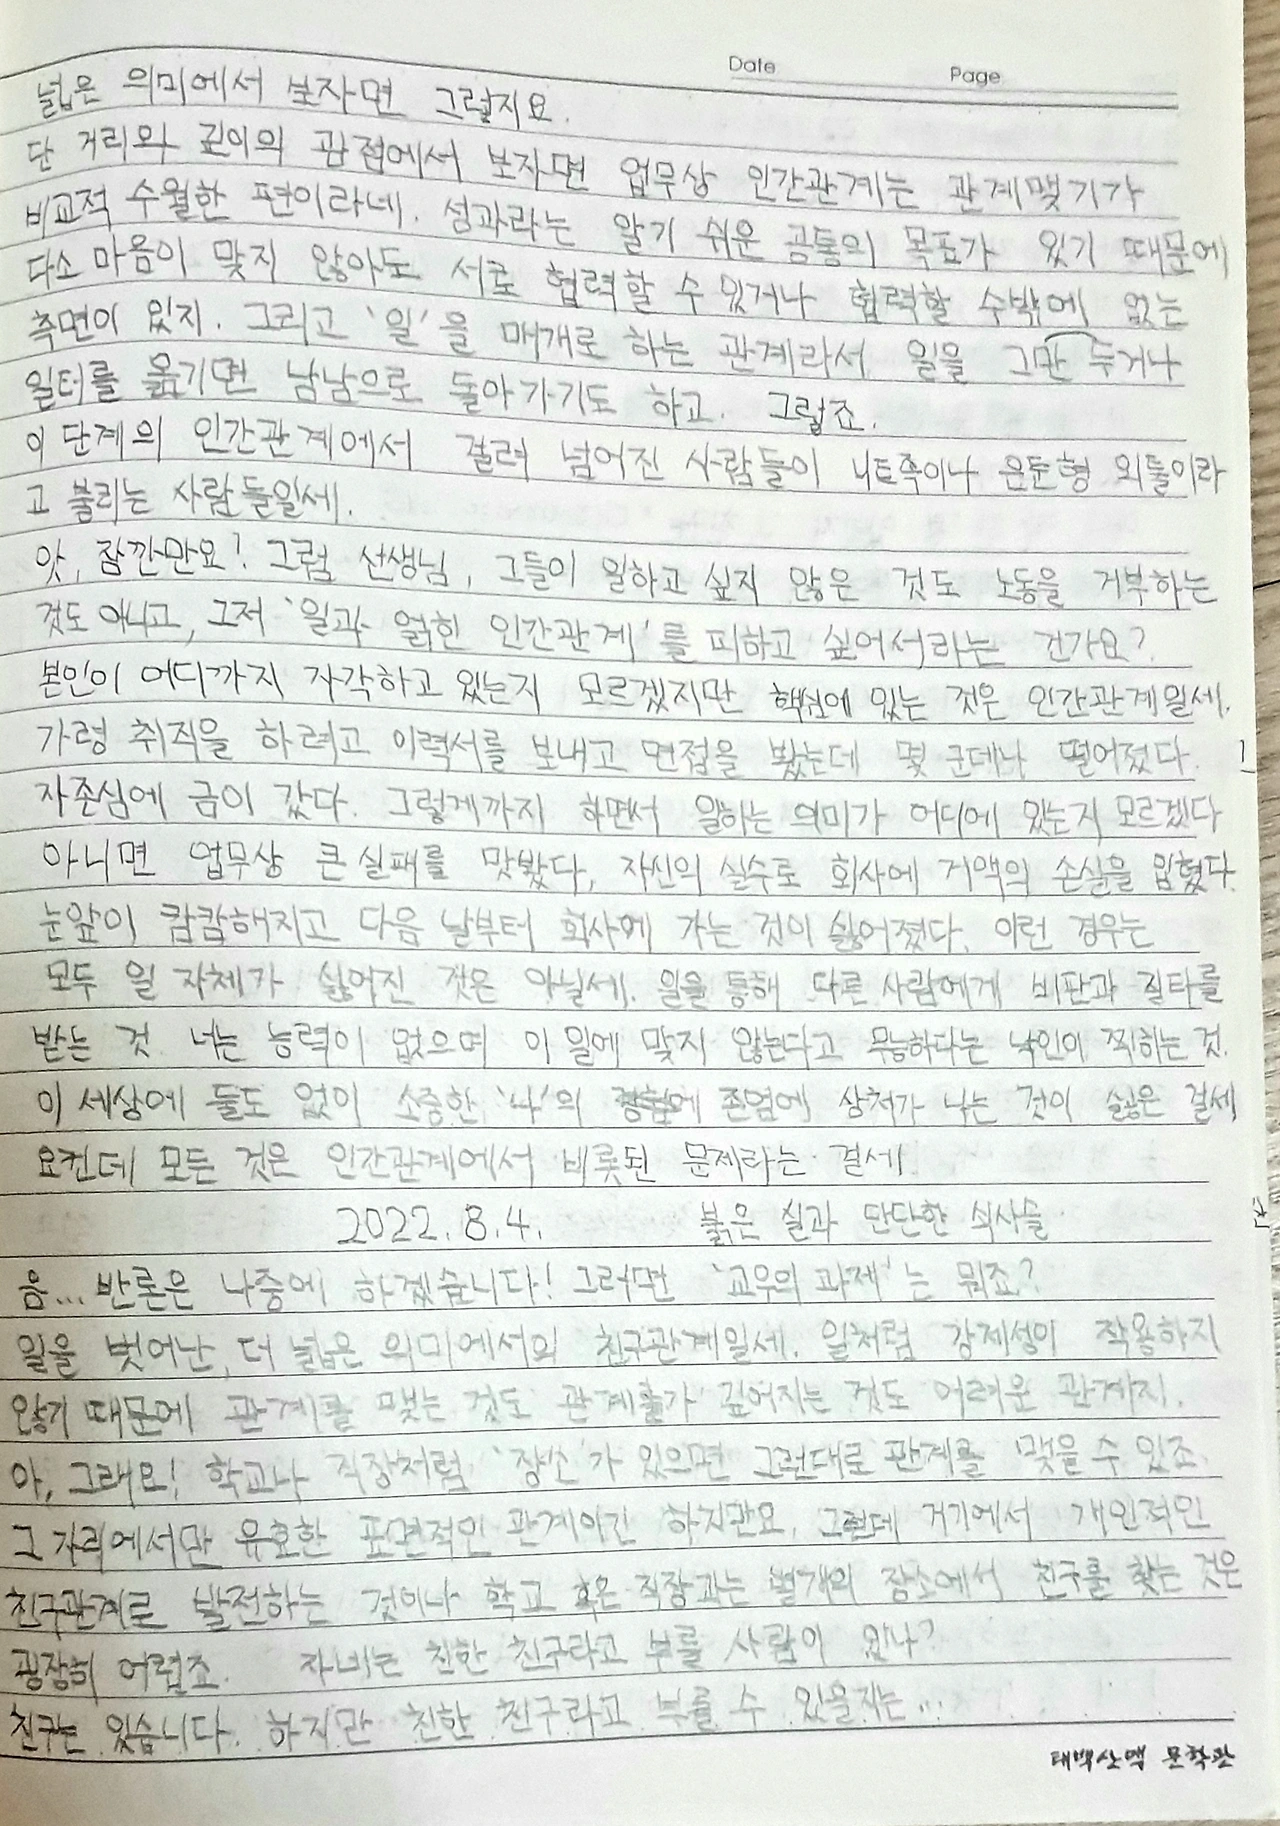 Date Page
넓은 의미에서 보자면 그렇지요.
단 거리와 깊이의 관점에서 보자면 업무상 인간관계는 관계맺기가
비교적 수월한 편이라네. 성과라는 알기 쉬운 공통의 목표가 있기 때문에
다소 마음이 맞지 않아도 서로 협력할 수 있거나 협력할 수밖에 없는
측면이 있지. 그리고 '일'을 매개로 하는 관계라서 일을 그만 두거나
일터를 옮기면 남남으로 돌아가기도 하고. 그렇죠.
이 단계의 인간관계에서 걸려 넘어진 사람들이 니트족이나 은둔형 외톨이라
고 불리는 사람들일세.
앗, 잠깐만요! 그럼 선생님, 그들이 일하고 싶지 않은 것도 노동을 거부하는
것도 아니고, 그저 '일과 얽힌 인간관계'를 피하고 싶어서라는 건가요?
본인이 어디까지 자각하고 있는지 모르겠지만 핵심에 있는 것은 인간관계일세.
가령 취직을 하려고 이력서를 보내고 면접을 봤는데 몇 군데나 떨어졌다.
자존심에 금이 갔다. 그렇게까지 하면서 일하는 의미가 어디에 있는지 모르겠다
아니면 업무상 큰 실패를 맛봤다, 자신의 실수로 회사에 거액의 손실을 입혔다.
눈앞이 캄캄해지고 다음 날부터 회사에 가는 것이 싫어졌다. 이런 경우는
모두 일 자체가 싫어진 것은 아닐세. 일을 통해 다른 사람에게 비판과 질타를
받는 것 너는 능력이 없으며 이 일에 맞지 않는다고 무능하다는 낙인이 찍히는 것.
이 세상에 둘도 없이 소중한 '나'의 존엄에 상처가 나는 것이 싫은 걸세
요컨데 모든 것은 인간관계에서 비롯된 문제라는 걸세
2022. 8. 4. 붉은 실과 단단한 쇠사슬
음... 반론은 나중에 하겠습니다! 그러면 '교우의 과제'는 뭐죠?
일을 벗어난, 더 넓은 의미에서의 친구관계일세. 일처럼 강제성이 작용하지
않기 때문에 관계를 맺는 것도 관계가 깊어지는 것도 어려운 관계지.
아, 그래요! 학교나 직장처럼 '장소'가 있으면 그런대로 관계를 맺을 수 있죠.
그 자리에서만 유효한 표면적인 관계이긴 하지만요. 그런데 거기에서 개인적인
친구관계로 발전하는 것이나 학교 혹은 직장과는 별개의 장소에서 친구를 찾는 것은
굉장히 어렵죠. 자네는 친한 친구라고 부를 사람이 있나?
친구는 있습니다. 하지만 친한 친구라고 부를 수 있을지는...
태백산맥 문학관